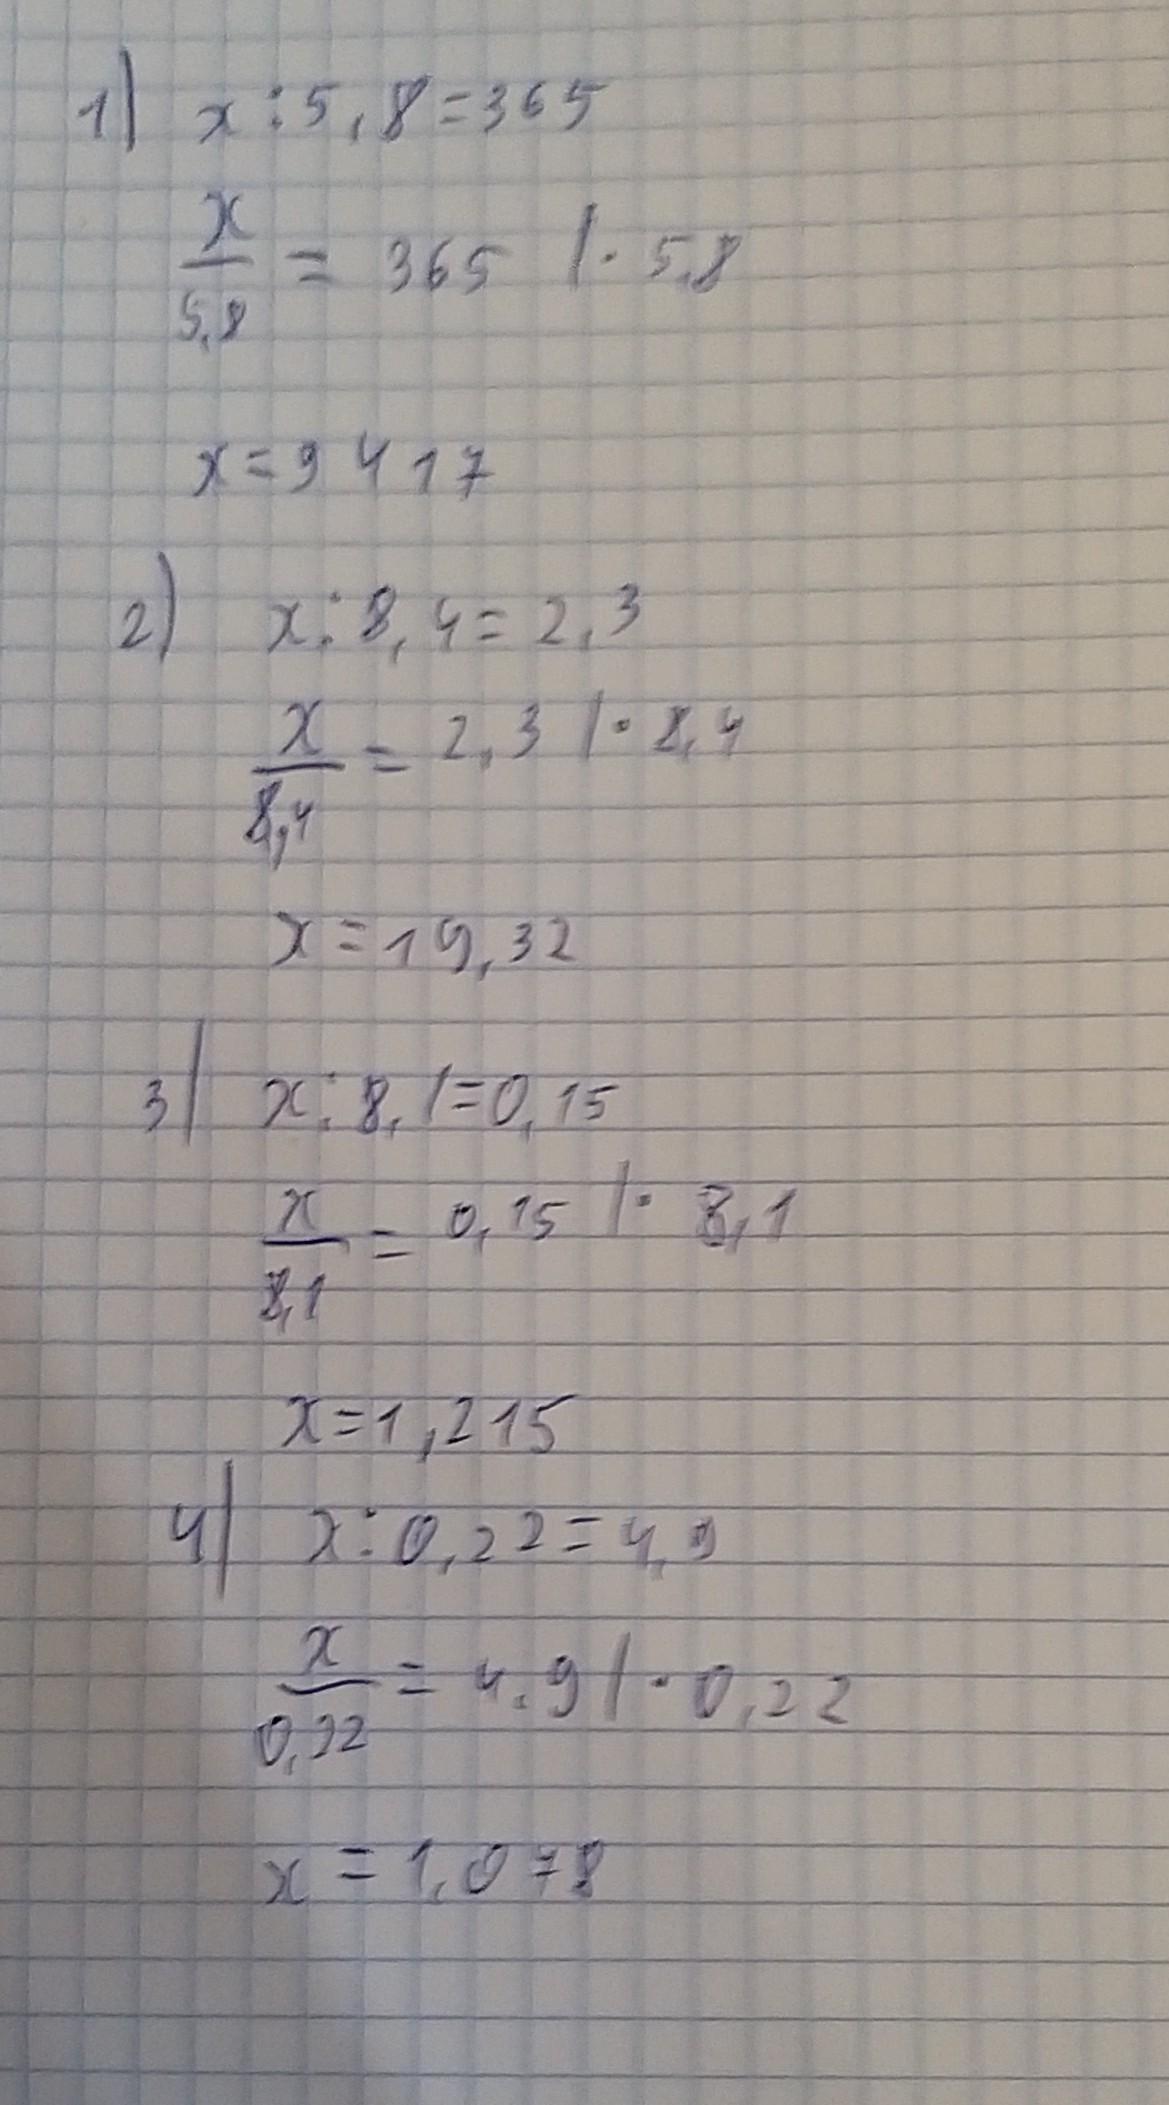 1) x:5,8=365
x/5,8 = 365 |· 5,8
x=9417
2) x:8,4=2,3
x/8,4 = 2,3 |· 8,4
x=19,32
3) x:8,1=0,15
x/8,1 = 0,15 |· 8,1
x=1,215
4) x:0,22=4,9
x/0,22 = 4,9 |· 0,22
x=1,078